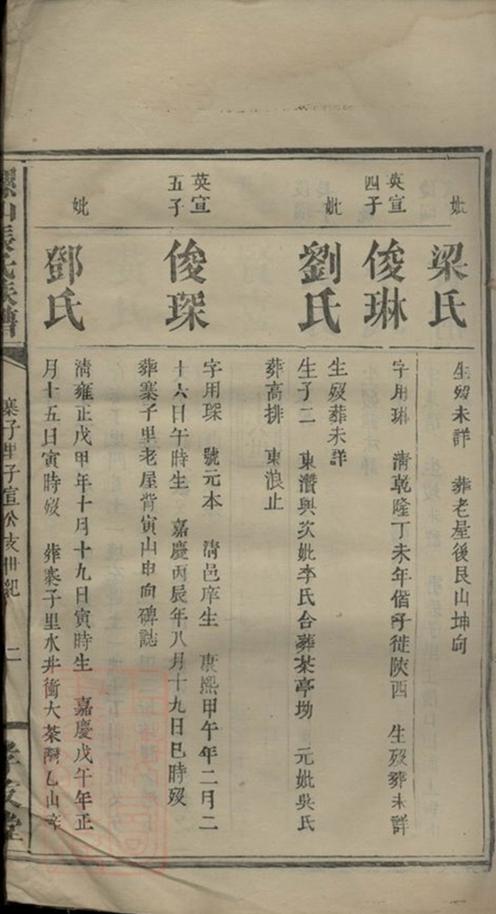 妣
梁氏
生歿未詳 葬老屋後艮山坤向
英宣四子
俊琳
字用琳 清乾隆丁未年偕子徙陝西 生歿葬未詳
妣
劉氏
生歿葬未詳
生子二 東瓚與次妣李氏合葬茶亭坳 元妣吳氏
葬高排 東浪止
英宣五子
俊琛
字用琛 號元本 清邑庠生 康熙甲午年二月二
十六日午時生 嘉慶丙辰年八月十九日巳時歿
葬寨子里老屋背寅山申向碑誌
妣
鄧氏
清雍正戊甲年十月十九日寅時生 嘉慶戊午年正
月十五日寅時歿 葬寨子里水井衝大茶灣乙山辛
山張氏族譜
寨子里子宣公支世紀
二
孝友堂